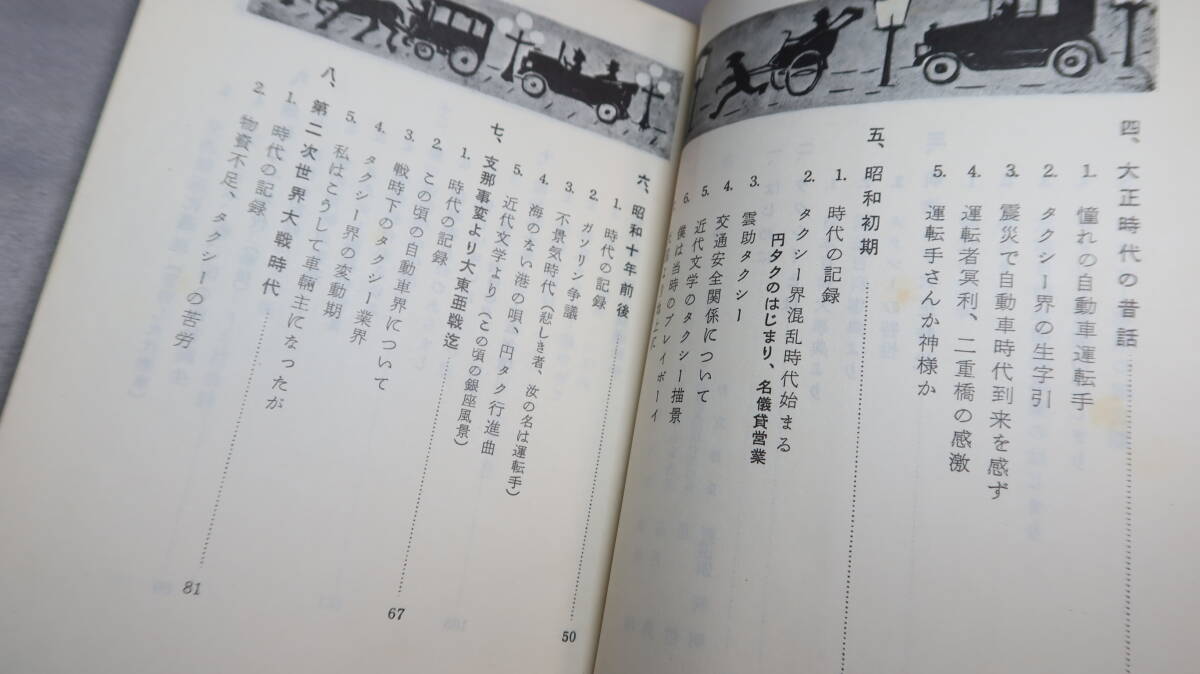 四、大正時代の昔話
1. 憧れの自動車運転手
2. タクシー界の生字引
3. 震災で自動車時代到来を感ず
4. 運転者冥利、二重橋の感激
5. 運転手さんか神様か
五、昭和初期
1. 時代の記録
2. タクシー界混乱時代始まる
円タクのはじまり、名儀貸営業
3. 雲助タクシー
4. 交通安全関係について
5. 近代文学のタクシー描景
6. 僕は当時のプレイボーイ
六、昭和十年前後
50
1. 時代の記録
2. ガソリン争議
3. 不景気時代(悲しき者、汝の名は運転手)
4. 海のない港の唄、円タク行進曲
5. 近代文学より(この頃の銀座風景)
七、支那事変より大東亜戦迄
67
1. 時代の記録
2. この頃の自動車界について
3. 戦時下のタクシー業界
4. タクシー界の変動期
5. 私はこうして車輛主になったが
八、第二次世界大戦時代
81
1. 時代の記録
2. 物資不足、タクシーの苦労